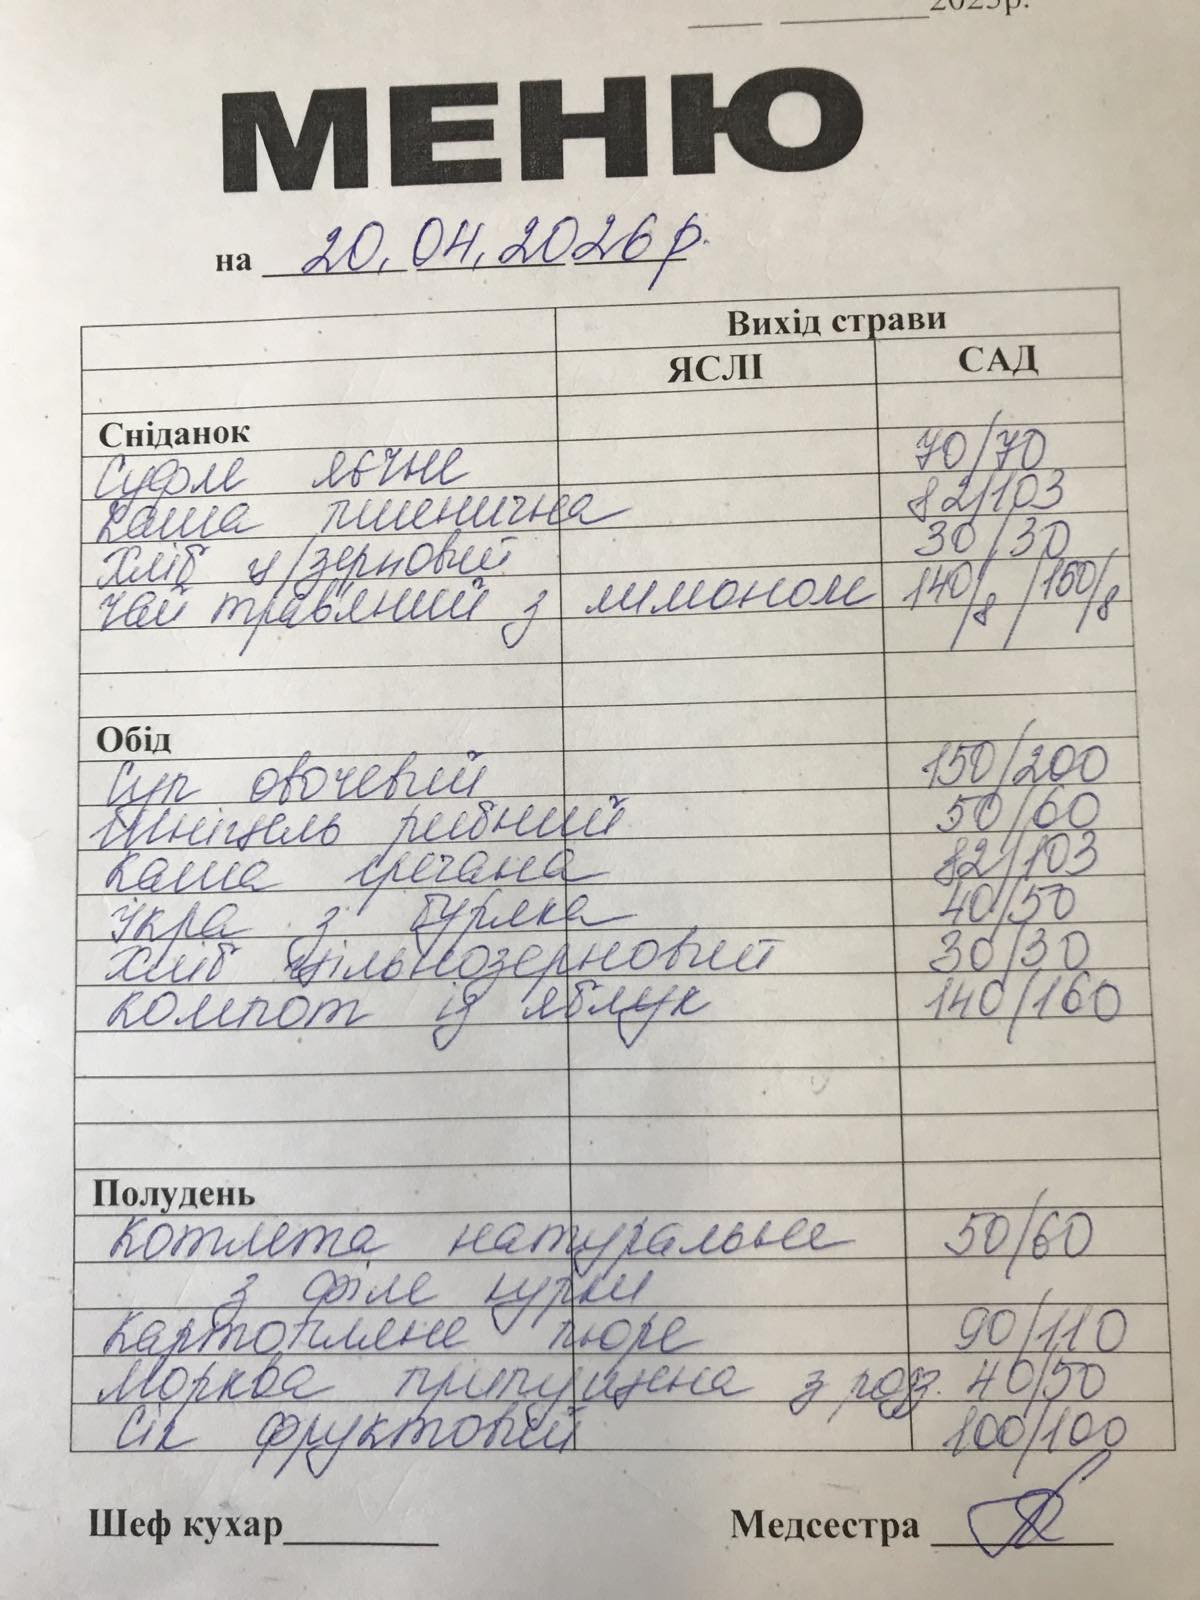 2025р.
МЕНЮ
на 20.04.2026р.
Вихід страви
ЯСЛІ САД
Сніданок
Суфле яєчне 70/70
Каша пшенична 82/103
Хліб ц/зерновий 30/30
Чай трав'яний з лимоном 140/8/150/8
Обід
Суп овочевий 150/200
Шніцель рибний 50/60
Каша гречана 82/103
Ікра з буряка 40/50
Хліб цільнозерновий 30/30
Компот із яблук 140/160
Полудень
Котлета натуральна 50/60
з філе курки
Картопляне пюре 90/110
Морква припущена з роз. 40/50
Сік фруктовий 100/100
Шеф кухар Медсестра